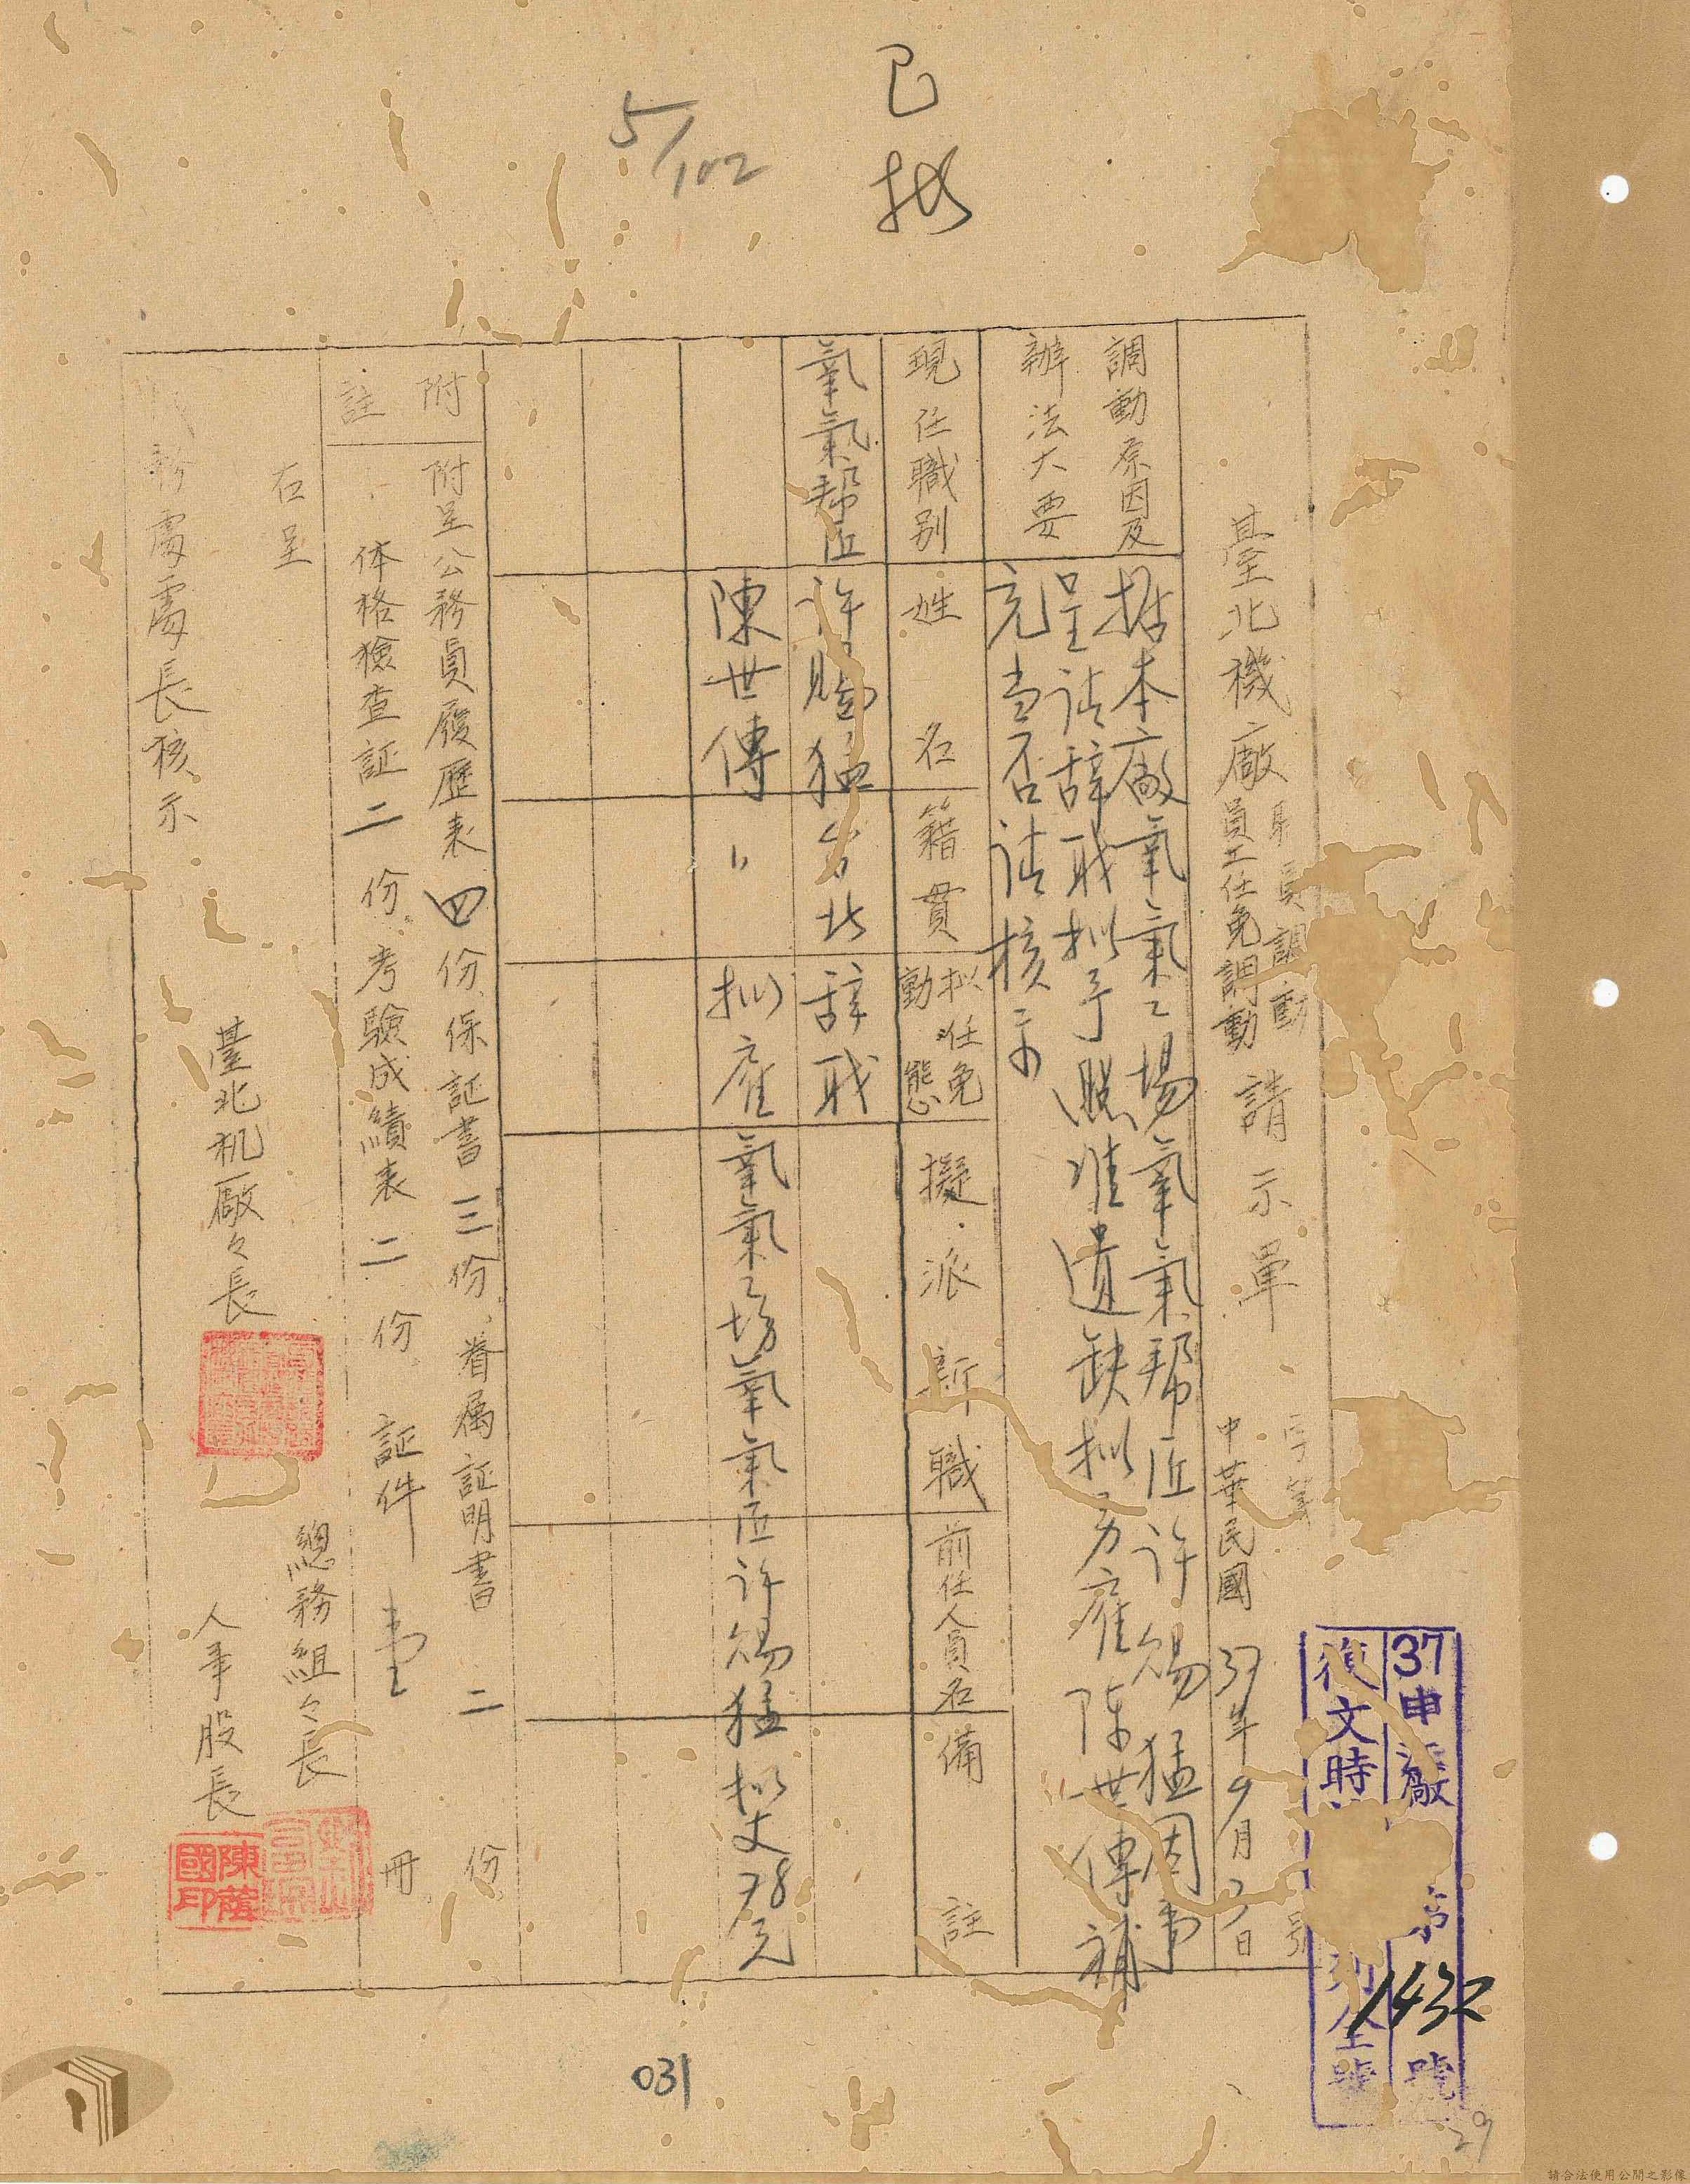 已批
5/102
臺北機廠員工任免調動請示單
調動
中華民國37年9月 日
號
37申 廠 第1432號
復文時 全號
29
調動原因及
辦法大要
据本廠氧氣工場氧氣帮匠许赐猛因事
呈请辞职拟予照准遗缺拟另雇陈世傳補
充当否请核示
現任職別
姓名
籍貫
拟任免動態
擬派新職
前任人員名
備註
氧氣帮匠 许赐猛 台北 辞职
陳世傳 〃 拟雇 氧氣工场氧氣匠 许赐猛 拟支78元
附註
附呈公務員履歷表四份、保証書三份、眷属証明書二份
体格檢查証二份、考驗成績表二份 証件壹冊
右呈
處處長核示
臺北机廠々長
總務組々長
人事股長
陳蔭國印
031
請合法使用公開之影像